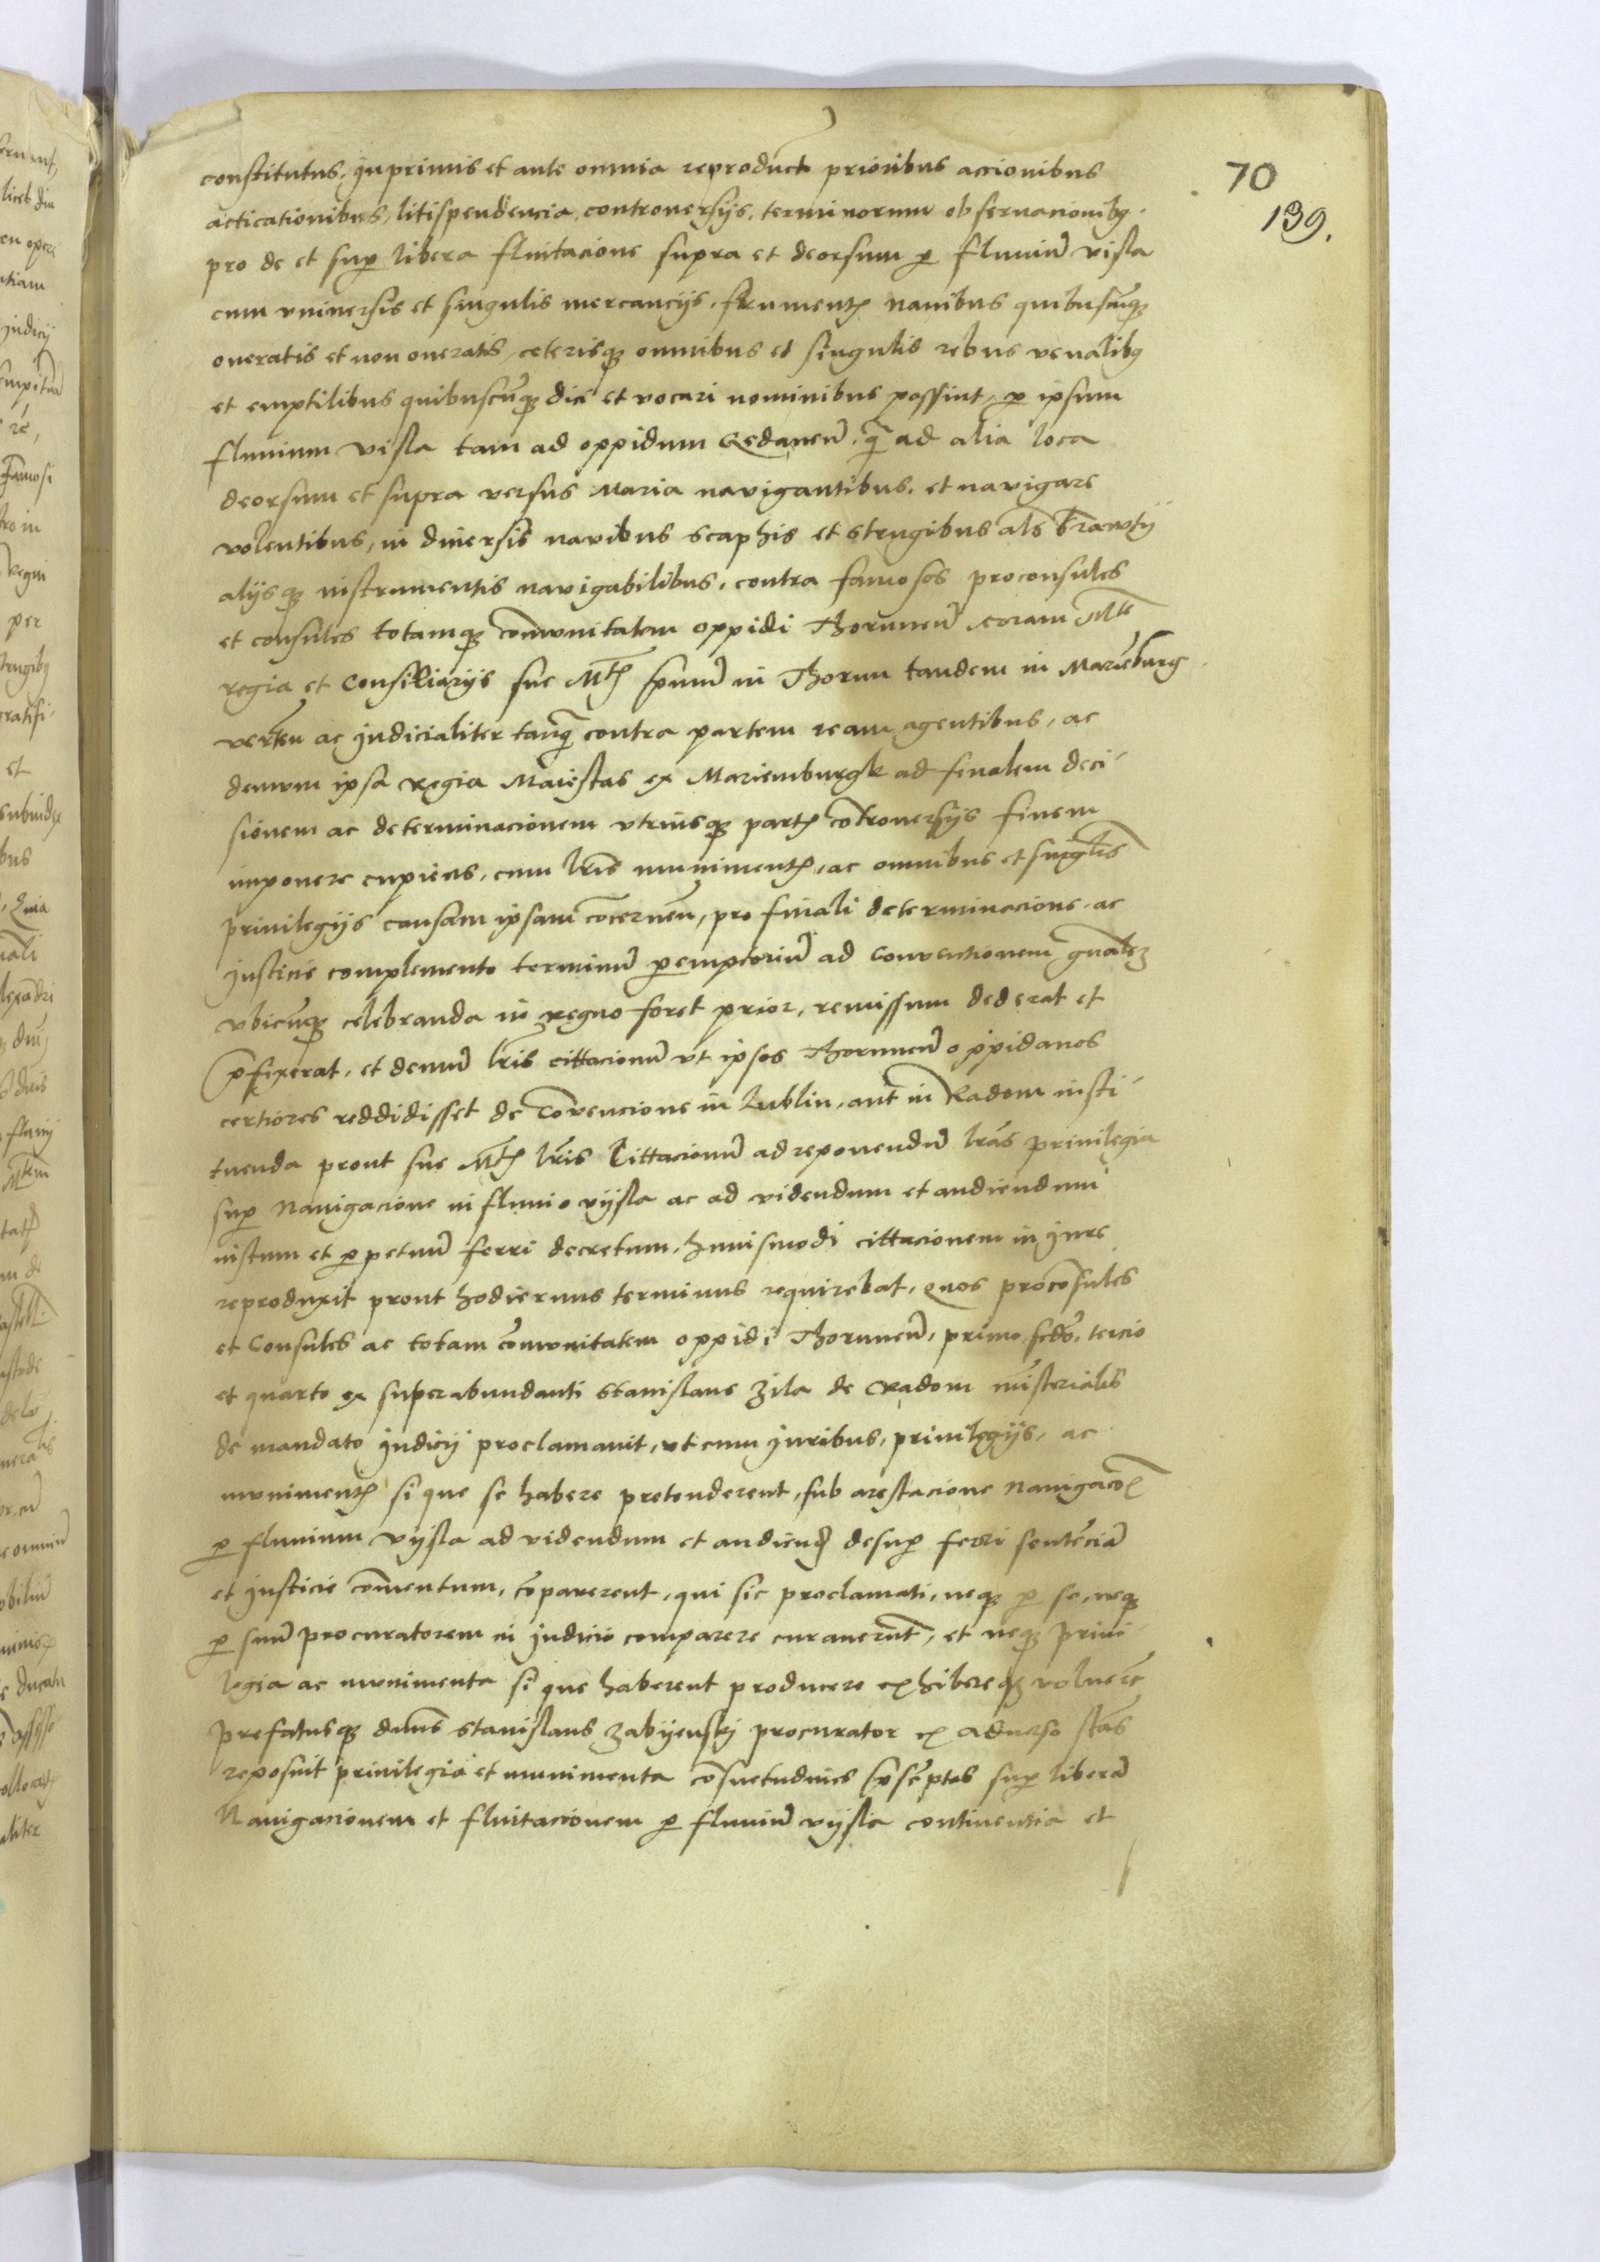 70
139.
constitutus, Inprimis et ante omnia reproductis prioribus accionibus
acticationibus, litispendencia, controversijs, terminorum observacionibq
pro de et sup libera fluitacione supra et deorsum p fluuiũ visla
cum vniuersis et singulis mercancijs, frumentꝭ nauibus quibuscũqꝫ
oneratis et non oneratis, ceterisqꝫ omnibus et singulis rebus venalibq
et emptilibus quibuscũqꝫ dici et vocari nominibus possint, p ipsum
fluuium visla tam ad oppidum Gedaneñ, q̃ ad alia loca
deorsum et supra versus Maria navigantibus, et navigare
volentibus, in diuersis navibus scaphis et strugibus als Trawtij
alijsqꝫ instrumentis navigabilibus, contra famosos proconsules
et consules totamqꝫ com̃unitatem oppidi Thoruneñ coram Mte
regia et Consiliarijs sue Mtꝭ pmũ in Thorun tandem in Mariẽburg
verteñ ac Judicialiter tanq̃ contra partem ream agentibus, ac
demum ipsa regia Maiestas ex Mariemburgk ad finalem deci-
sionem ac determinacionem vtriusqꝫ partꝭ cõtroversijs finem
imponere cupiens, cum lr̃is munimentꝭ, ac omnibus et singlis
priuilegijs causam ipsam cõcerneñ, pro finali determinacione ac
Justicie complemento terminũ pemptoriũ ad Conventionem gnalẽ
vbicũqꝫ celebranda in regno foret prior, remissum dederat et
pfixerat, et demũ lr̃is cittacionũ vt ipsos Thoruneñ oppidanos
certiores reddidisset de Cõvencione in Lublin, aut in Radom insti-
tuenda prout sue Mtꝭ lr̃is Cittacionũ ad reponendũ lr̃as priuilegia
sup Nauigacione in fluuio vijsla ac ad videndum et audiendum
iustum et ppetuũ ferri decretum, huiusmodi cittacionem in Jure
reproduxit prout hodiernus terminus requirebat, Quos procõsules
et Consules ac totam cõmunitatem oppidi Thoruneñ, primo, scdo, tercio
et quarto ex superabundanti Stanislaus Zila de Radom misterialis
de mandato Judicij proclamauit, vt cum Juribus, priuilegijs, ac
munimentꝭ si que se habere pretenderent, sub arestacione Nauigacõꝭ
p fluuium vijsla ad videndum et audiend desup ferri sentẽciã
et Justicie cõmentum, cõparerent, qui sic proclamati, neqꝫ p se, neqꝫ
p suũ procuratorem in Judicio comparere curauerũt, et neqꝫ priui-
legia ac munimenta si que haberent producere exhibereqꝫ voluerũt
prefatusqꝫ dn̄s Stanislaus Zabijenskj procurator ex aduerso stãs
reposuit priuilegia et munimenta cõsuetudines pscriptas sup liberã
Nauigacionem et fluitacionem p fluuiũ vijsla continentia et